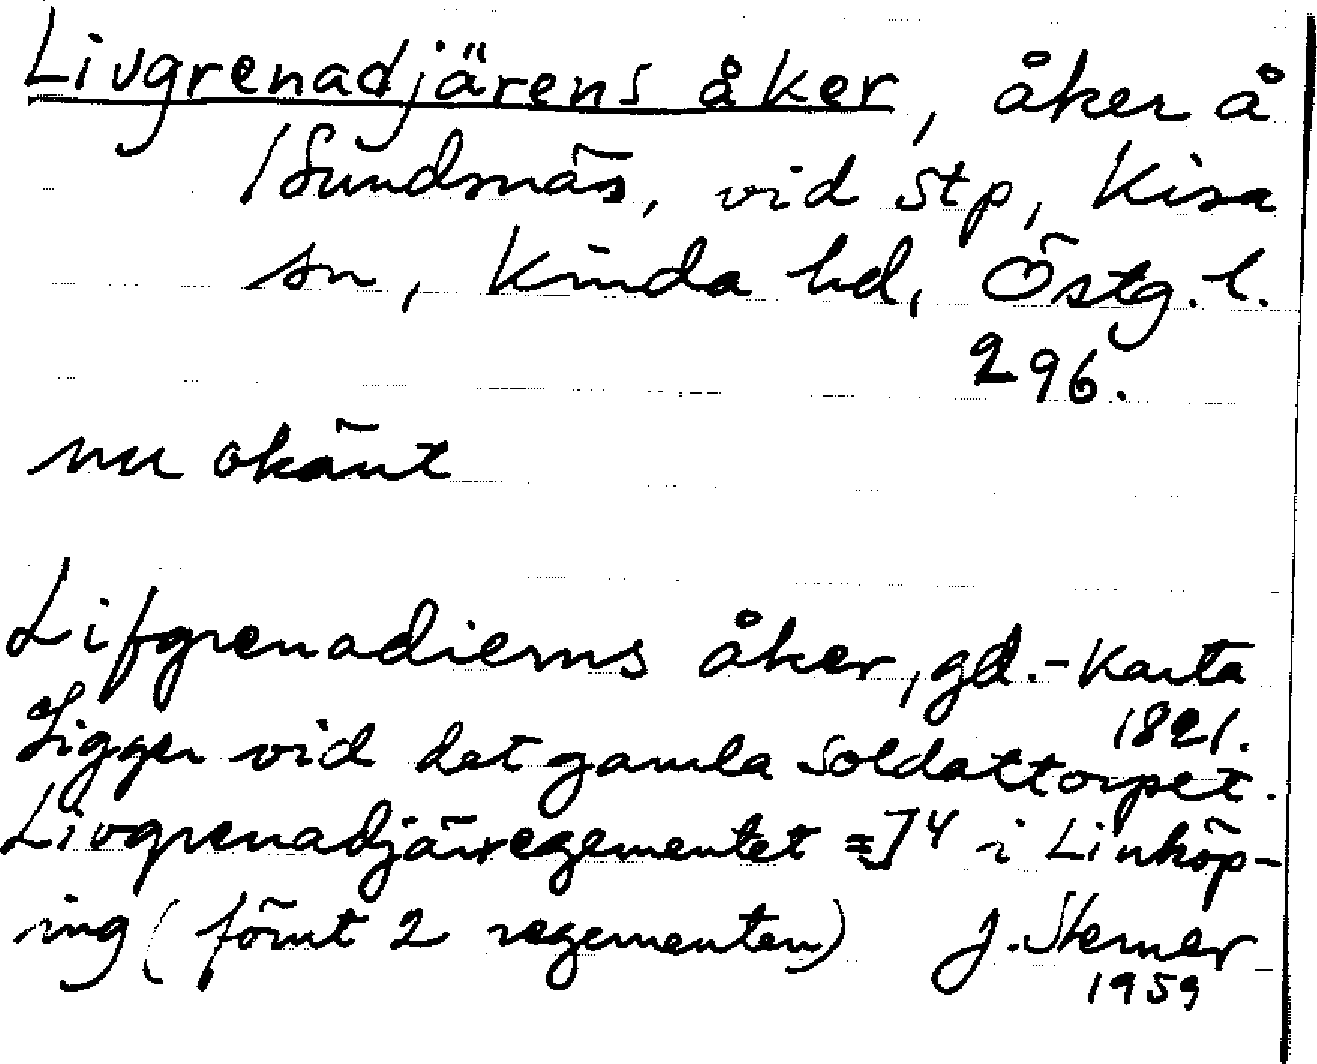 Livgrenadjärens åker, åker å
/Sundsnäs, vid stp, Kisa
sn, Kinda hd, Östg. l.
296.
nu okänt
Lifgrenadierns åker, gd.-karta
1821.
Ligger vid det gamla soldattorpet.
Livgrenadjärregementet = J 4 i Linköp-
ing (förut 2 regementen) J. Sterner
1959